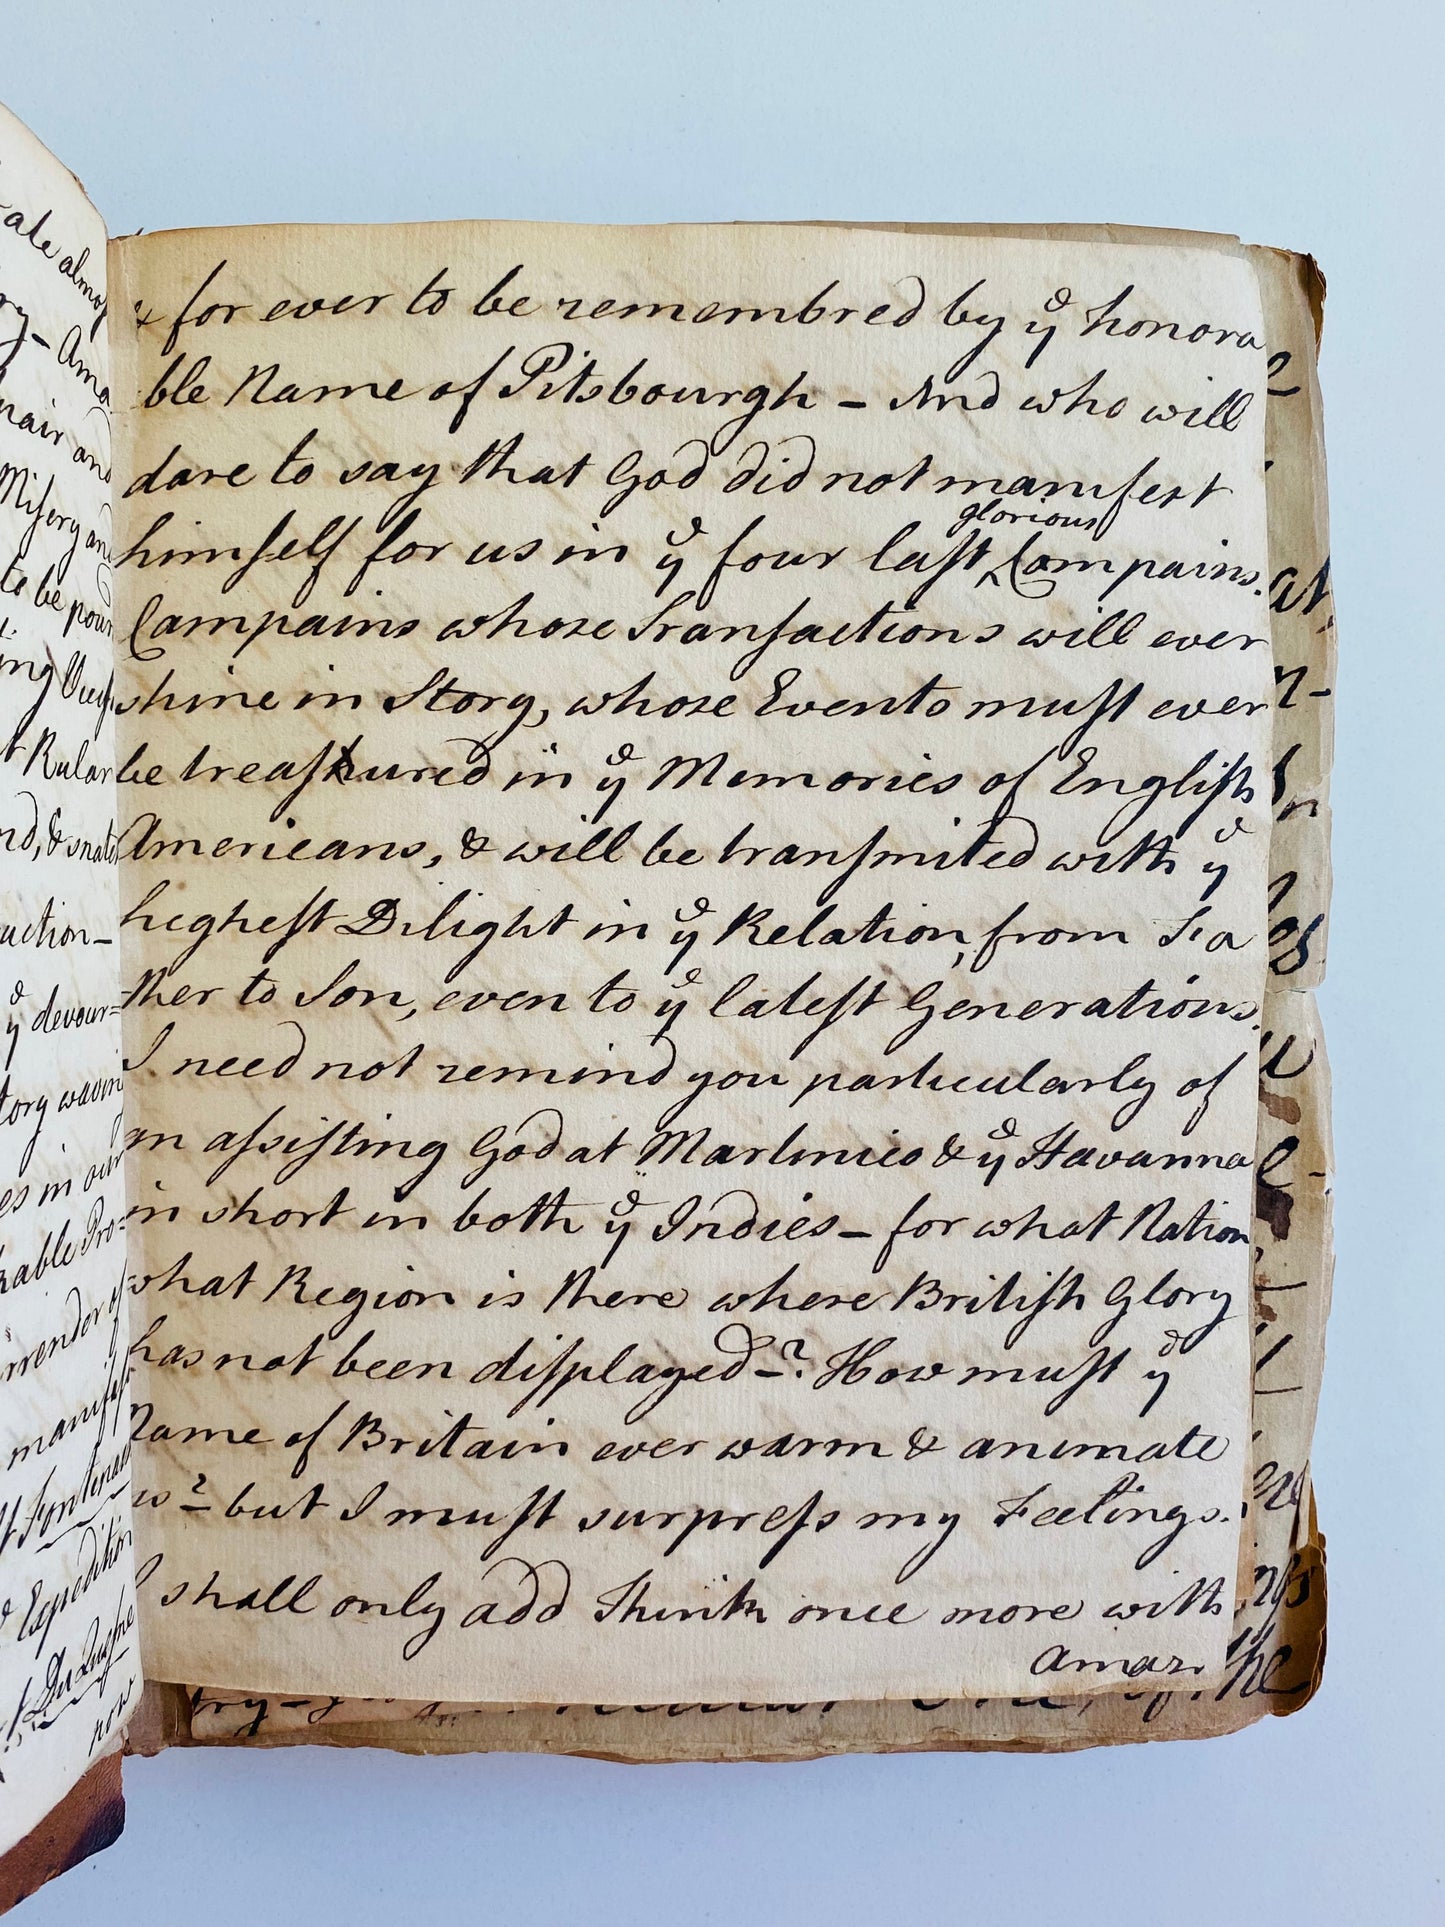 & for ever to be remembred by yͤ honora
ble Name of Pitsbourgh – And who will
dare to say that God did not manifest
glorious
himſelf for us in yͤ four laſt ‸ Campains.
Campains whose Tranſactions will ever
shine in Story, whose Events muſt ever
be treaſured in yͤ Memories of Engliſh
Americans, & will be tranſmited with yͤ
higheſt Delight in yͤ Relation, from Fa
ther to Son, even to yͤ lateſt Generations.
I need not remind you particularly of
an aſsiſting God at Martinico & yͤ Havanna
in short in both yͤ Indies – for what Nation
what Region is there where Britiſh Glory
has not been diſplayed –? How muſt yͤ
Name of Britain ever warm & animate
us? – but I muſt surpreſs my Feelings.
I shall only add Think once more with
amaz.
ate almoſ
ry – Ama
nair and
Miſery an
to be pour
ing
Rular
nd, & snatc
uction –
yͤ devour=
tory wavin
es in our
kable Pro=
rrender of
manifeſt
of Fontenac
Expedition
Du Quſne
now
at,
n-
the